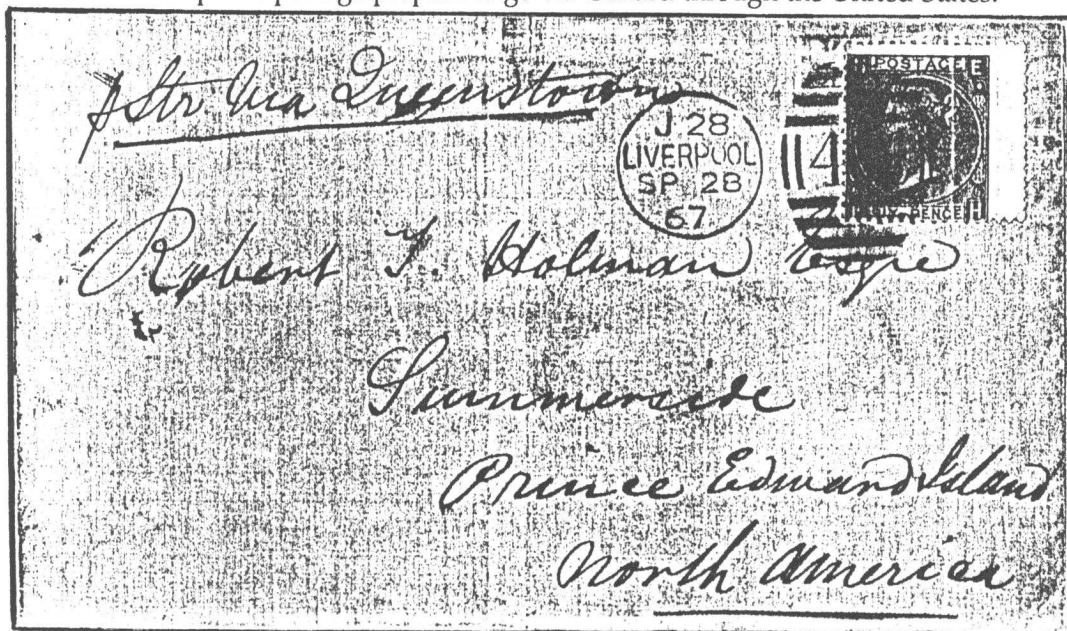 through the United States.
p Str Via Queenstown
J 28
LIVERPOOL
SP 28
67
4
POSTAGE
SIX PENCE
Robert T. Holman Esqre
Summerside
Prince Edward Island
North America